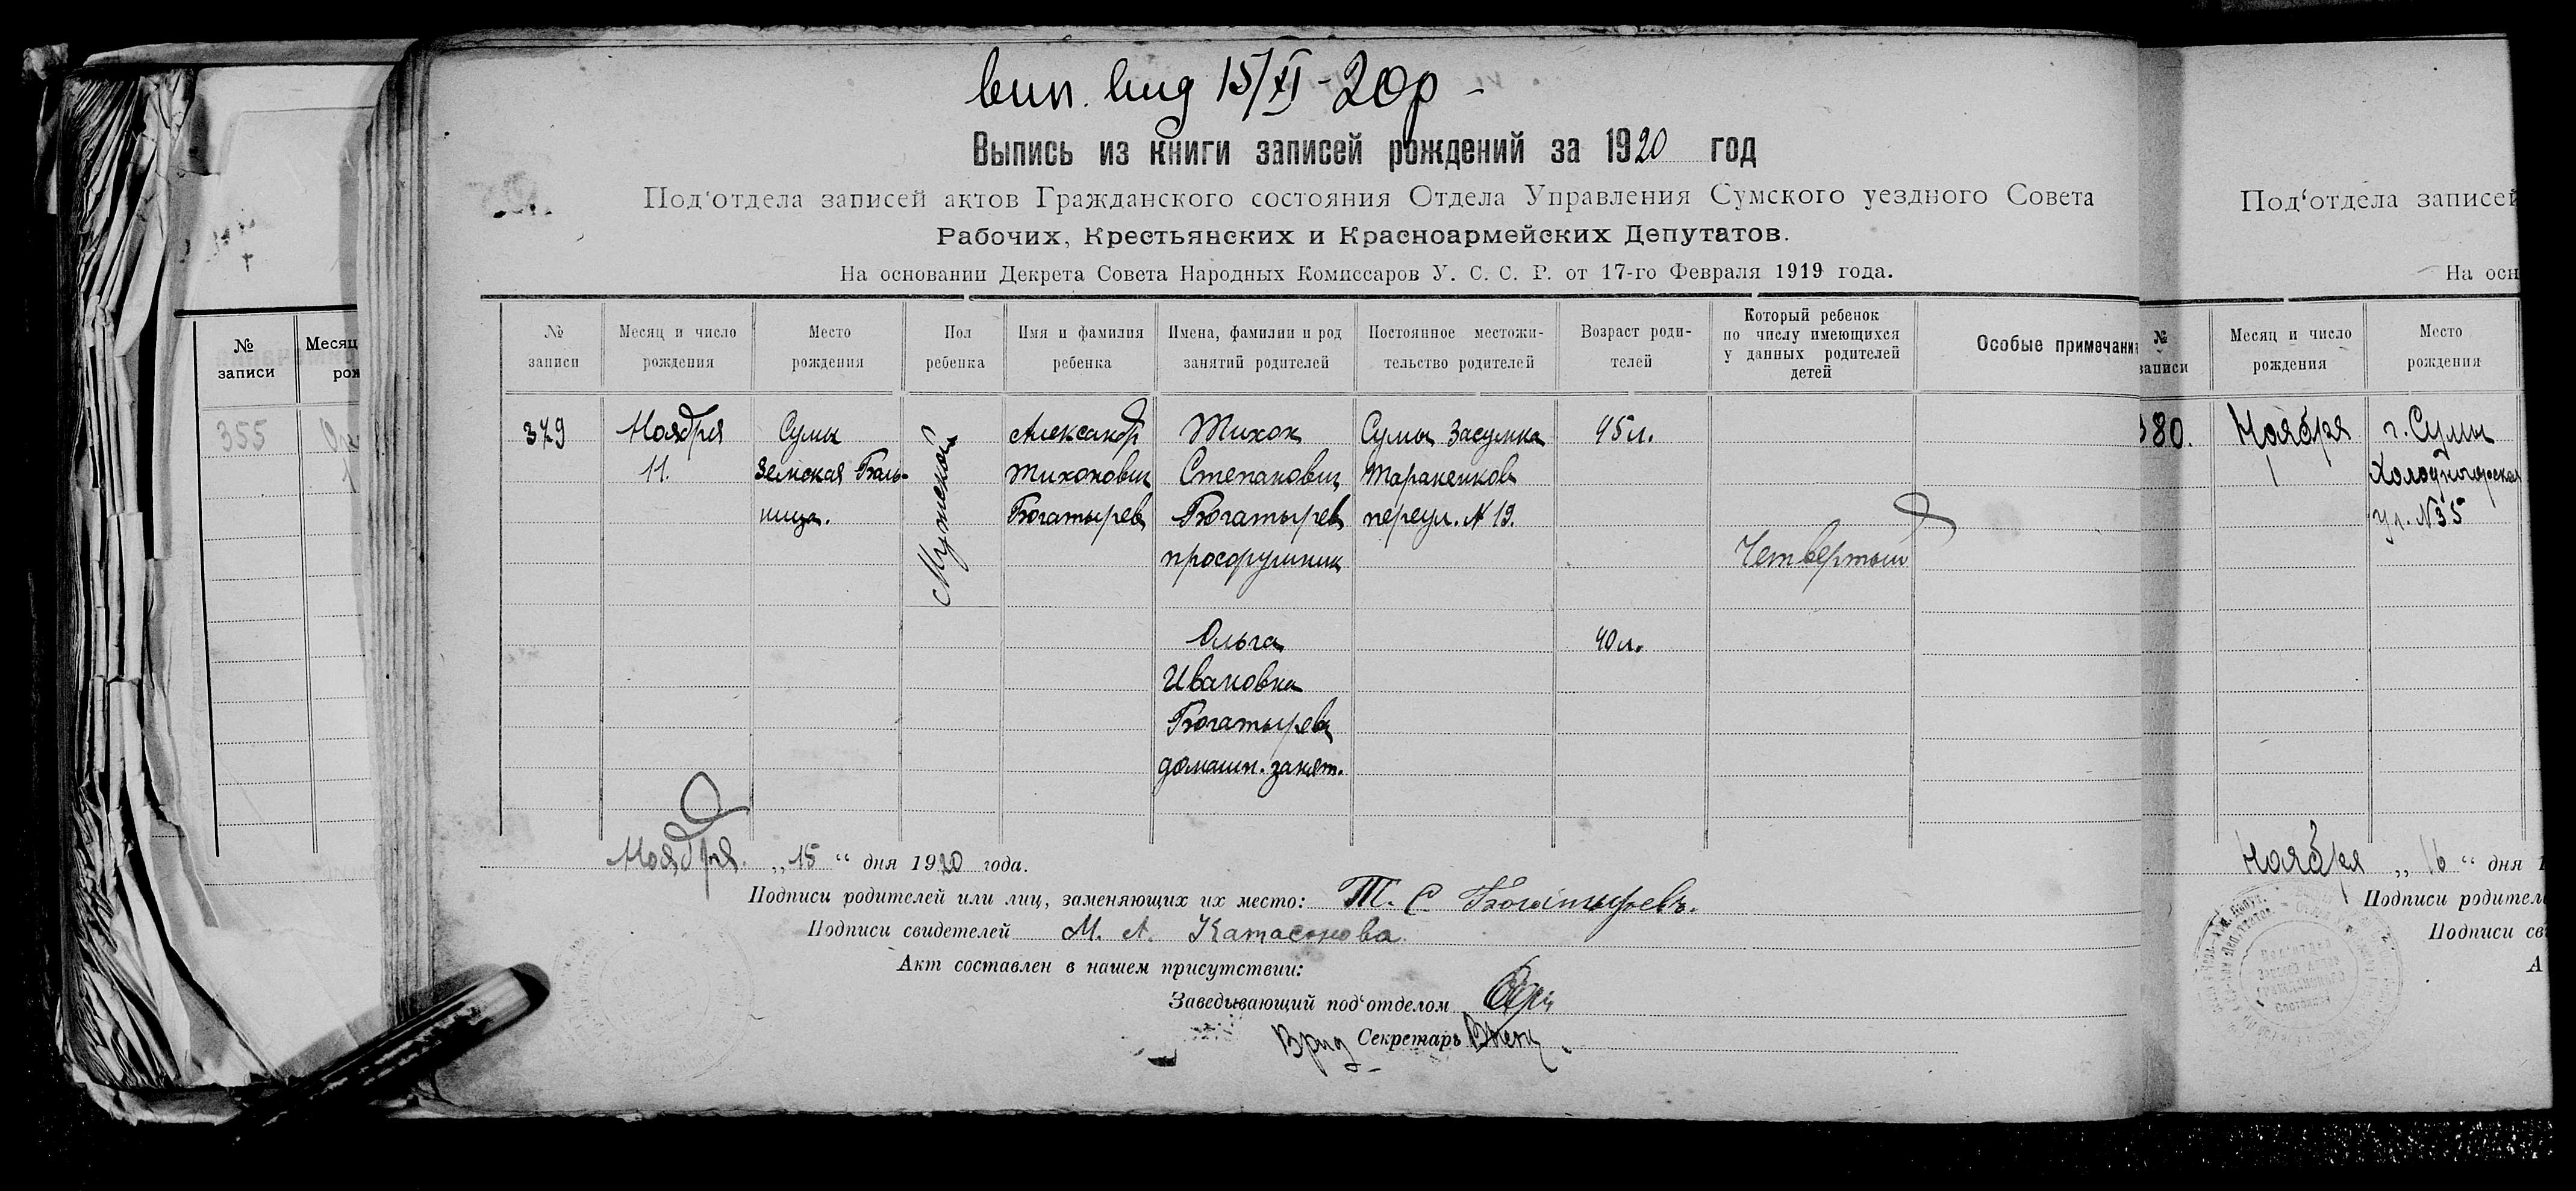 вип. вид 15/XI - 20р -
Выпись из книги записей рождений за 1920 год
Под‘отдела записей актов Гражданского состояния Отдела Управления Сумского уездного Совета
Рабочих, Крестьянских и Красноармейских Депутатов.
На основании Декрета Совета Народных Комиссаров У. С. С. Р. от 17-го Февраля 1919 года.
№ записи
Месяц и число рождения
Место рождения
Пол ребенка
Имя и фамилия ребенка
Имена, фамилии и род занятий родителей
Постоянное местожи-
тельство родителей
Возраст роди-
телей
Который ребенок
по числу имеющихся
у данных родителей
детей
Особые примечани
379
Ноября
11.
Сумы
Земская Боль-
ница.
Мужской
Александр
Тихонович
Богатырев
Тихон
Степанович
Богатырев
Ольга
Ивановна
Богатырева
домашн. занят.
Сумы Засумка
Тараненков
переул. № 19.
45 л.
40 л.
Четвертый
Ноября „15“ дня 1920 года.
Подписи родителей или лиц, заменяющих их место: Т. С. Богатыревъ.
Подписи свидетелей М. А. Катасонова
Акт составлен в нашем присутствии:
Заведывающий под‘отделом
Врид Секретарь
№
записи
Месяц
рож
355
Под‘отдела записей
На осн
№
записи
Месяц и число
рождения
Место
рождения
380.
Ноября
1
г. Сумы
Холодногорская
ул. № 35
Ноября „16“ дня 1
Подписи родител
Подписи св
А